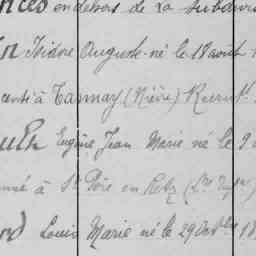 en dehors de la subdivis
Isidore Auguste né le 18 août
à Tannay (Nièvre) Recrut.t
Eugène Jean Marie né le 9
à St Père en Retz (Lre Infre)
Louis Marie né le 29 Octbre 18